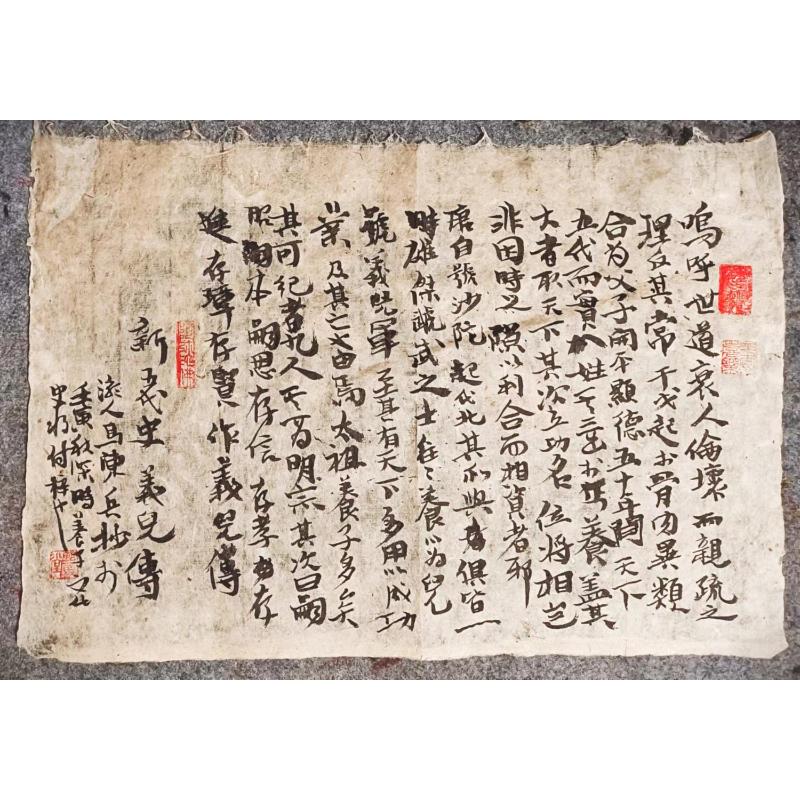 嗚呼世道衰人倫壞而親疏之
理反其常干戈起於骨肉異類
合为父子開平顯德五十年間天下
五代而實八姓其三出於丐養盖其
大者取天下其次立功名位將相豈
非因時之隙以利合而相資者邪
唐自號沙陀起代北其所與俱皆一
時雄傑虣武之士往々養以為兒
號義兒軍至其有天下多用以成功
業及其亡也由焉太祖養子多矣
其可紀者九人其一為明宗其次曰嗣
昭嗣本嗣恩存信存孝存
進存璋存賢作義兒傳
新五代史義兒傳
流人馬陳兵抄於
壬寅秋深時養